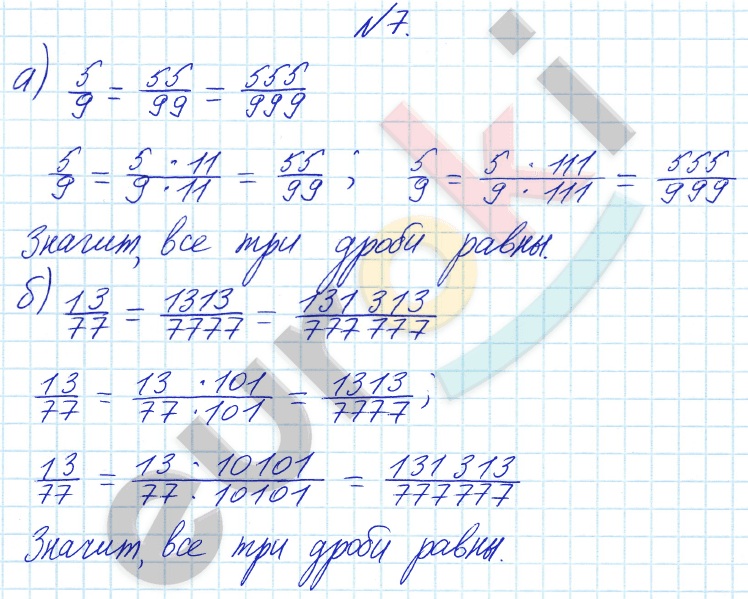 №7.
а) 5/9 = 55/99 = 555/999
5/9 = 5 · 11/9 · 11 = 55/99 ; 5/9 = 5 · 111/9 · 111 = 555/999
Значит, все три дроби равны.
б) 13/77 = 1313/7777 = 131 313/777 777
13/77 = 13 · 101/77 · 101 = 1313/7777 ;
13/77 = 13 · 10101/77 · 10101 = 131 313/777 777
Значит, все три дроби равны.
euroki